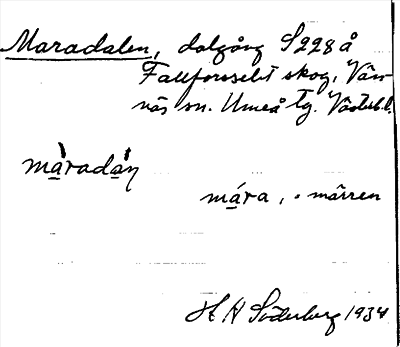 Maradalen, dalgång S228å
Fallforsselet skog, Vän-
näs sn. Umeå tg. Västerb.l.
màradáṇ
mára, . märren
H H Söderberg 1934